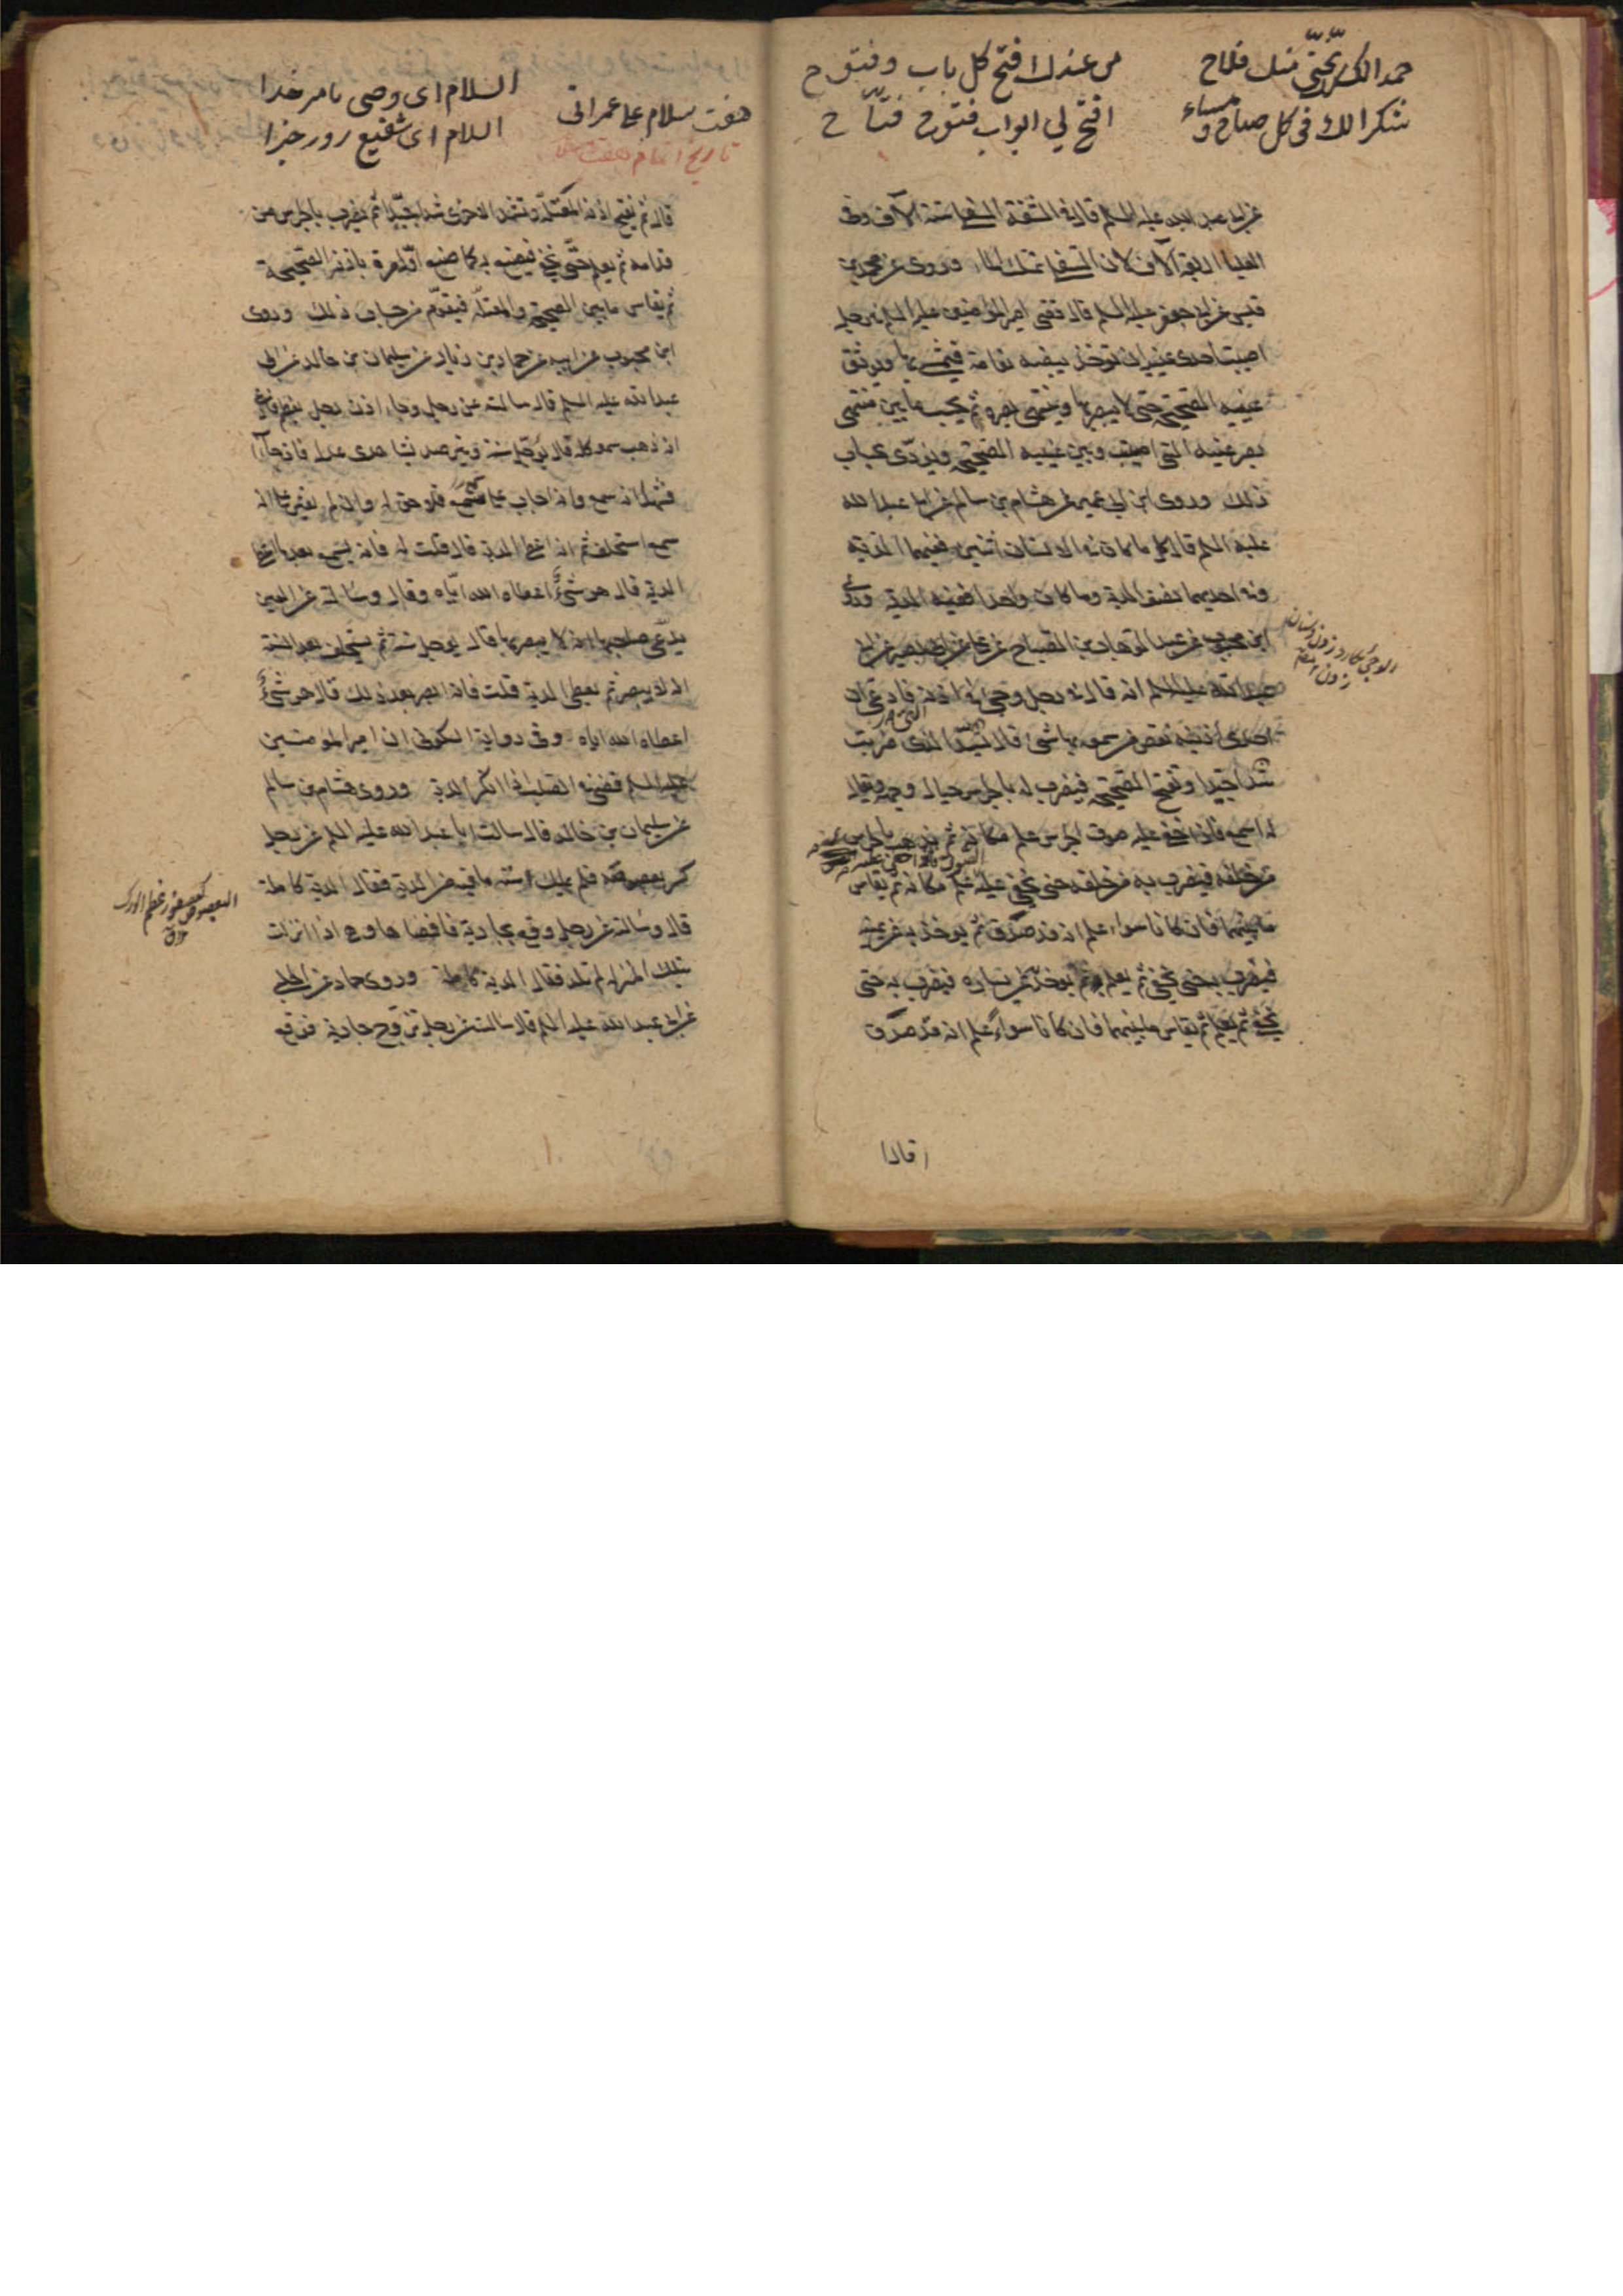 حمدا لك ربّ نجّني منك فلاح
من عندك افتح كل باب وفتوح
شكرا لك فی كل صباح و مساء
افتح لي ابواب فتوح فتّاح
عن ابی عبد الله عليه السلم قال فی الشفة السفلى ستة الآف وفی
العليا اربعة آلاف لان السفلى تمسك الماء وروى عن محمد بن
قيس عن ابی جعفر عليه السلم قال قضى امير المؤمنين عليه السلم فی رجل
اصيبت احدى عينيه ان تؤخذ بيضة نعامة فيمشى بها وتوثق
عينيه الصحيحة حتى لا يبصرها وينتهى بصره ثم يحسب ما بين منتهى
بصر عينيه التی اصيبت وبين عينيه الصحيحة ويؤدّى بحساب
ذلك وروى ابن ابی عمير عن هشام بن سالم عن ابی عبد الله
عليه السلم قال كل ما كان فی الانسان اثنين ففيهما الدية
وفی احديهما نصف الدية وما كان واحدا ففيه الدية وروى
ابن محبوب عن عبد الوهاب بن الصباح عن علی عن ابی بصير عن ابی
عبد الله عليه السلم انه قال فی رجل وجئ فی اذنه فادعى ان
احدى اذنيه نقص من سمعها شئ قال تسدّ التی ضربت
شدا جيدا وتفتح الصحيحة فيضرب له بالجرس حيال وجهه ويقال
له اسمع فاذا خفى عليه صوت الجرس علم مكانه ثم يذهب بالجرس
من خلفه فيضرب به من خلفه حتى يخفى عليه علم مكانه ثم يقاس
ما بينهما فان كانا سواء علم انه قد صدق ثم يؤخذ به عن يمينه
فيضرب به حتى يخفى ثم يعلم به ثم يؤخذ عن يساره فيضرب به حتى
يخفى ثم يعلم ثم يقاس ما بينهما فان كانا سواء علم انه قد صدق
قال
هفت سلام علی عمرانی
السلام ای وصی بامر خدا
السلام ای شفيع روز جزا
تاريخ اتمام هفت
قال ثم يفتح اذنه المعتلة وتشد الاخرى شدا جيدا ثم يضرب بالجرس من
قدامه ثم يعلم حتى يخفى فيصنع به كما صنع اول مرة باذنه الصحيحة
ثم يقاس ما بين الصحيحة والمعتلة فيقوّم من حساب ذلك وروى
ابن محبوب عن ابيه عن حماد بن زياد عن سليمان بن خالد عن ابی
عبد الله عليه السلم قال سالته عن رجل وجاء اذن رجل بعظم فادعى
انه ذهب سمعه كله قال يؤجل سنة ويترصد بشاهدى عدل فان جاآ
فشهدا انه سمع وانه اجاب على سمع فلا حق له وان لم يعثر على انه
سمع استحلف ثم انه اعطى الدية قال قلت له فانه يسمع بعد ما اعطى
الدية قال هو شئ اعطاه الله اياه وقال وسالته عن العين
يدعى صاحبها انه لا يبصر بها قال يؤجل سنة ثم يستحلف بعد السنة
انه لا يبصر ثم يعطى الدية قلت فانه ابصر بعد ذلك قال هو شئ
اعطاه الله اياه وفی رواية السكونی ان امير المؤمنين
عليه السلم قضى فی الصلب اذا انكسر الدية وروى هشام بن سالم
عن سليمان بن خالد قال سالت ابا عبد الله عليه السلم عن رجل
كسر بعصوصه فلم يملك استه ما فيه من الدية فقال الدية كاملة
قال وسالته عن رجل وقع بجارية فافضاها وهی اذا انزلت
بتلك المنزلة لم تلد فقال الدية كاملة وروى حماد عن الحلبی
عن ابی عبد الله عليه السلم قال سالته عن رجل تزوج جارية فوقع
البعصوص كعصفور عظم الورك